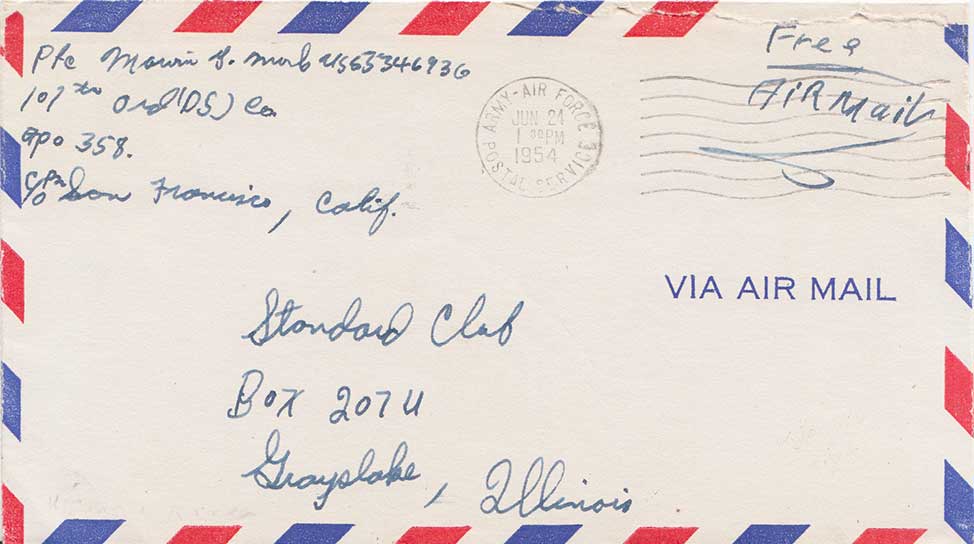 Pfc US55346936
107th Ord (DS) Co.
apo 358.
c/o Pm San Francisco, Calif.
ARMY-AIR FORCE
JUN 24
1 30PM
1954
POSTAL SERVICE
Free
AiR Mail
VIA AIR MAIL
Standard Club
Box 207 U
Grayslake, Illinois